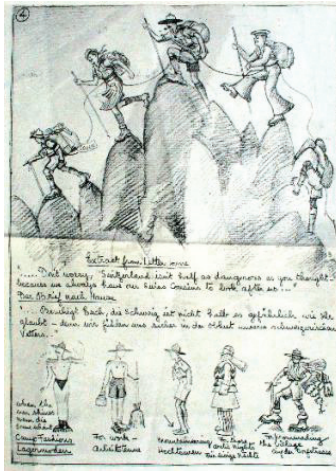 ④
Extract from Letter home
"..... Don't worry, Switzerland isn't half as dangerous as you thought
because we always have our Swiss Cousins to look after us ..."
Der Brief nach Hause
"... Beruhigt Euch, die Schweiz ist nicht halb so gefährlich wie Ihr
glaubt – denn wir fühlen uns sicher in der Obhut unserer schweizerischen
Vettern.
when the
sun shines
Camp Fashions
Lagermoden
For work –
Arbeitstenue
Mountaineering
Hochtouren
For
nights
Für eisige Nächte
For
the village